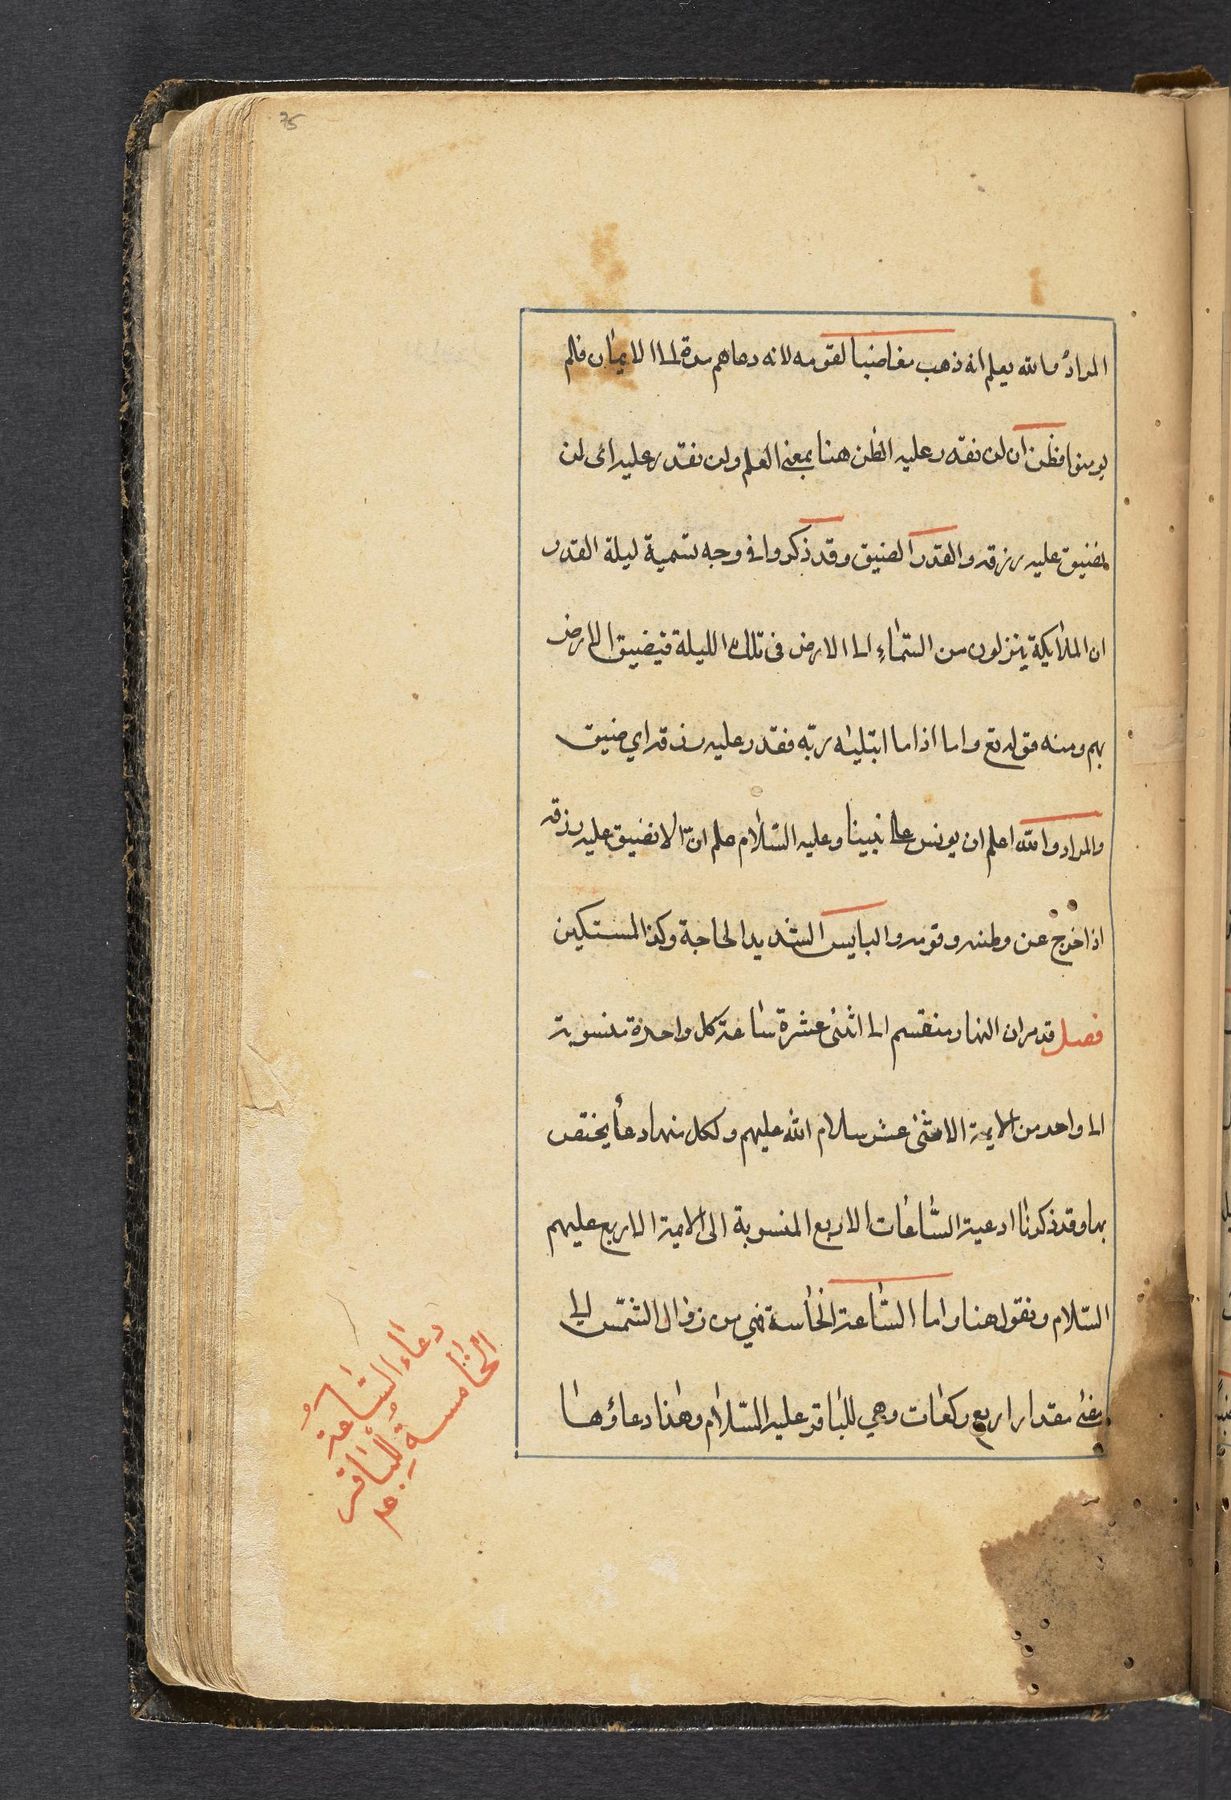 المراد والله يعلم انه ذهب مغاضبا لقومه لانه دعاهم مدة الى الايمان فلم
يومنوا فظن ان لن نقدر عليه الظن هنا بمعنى العلم ولن نقدر عليه اى لن
نضيق عليه رزقه والقدر الضيق وقد ذكروا في وجه تسمية ليلة القدر
ان الملائكة ينزلون من السماء الى الارض فى تلك الليلة فيضيق الارض
بهم ومنه قوله تع واما اذا ما ابتليه ربه فقدر عليه رزقه اي ضيق
والمراد والله اعلم ان يونس على نبينا وعليه السلام علم انا لا نضيق عليه رزقه
اذا خرج عن وطنه وقومه والبايس الشديد الحاجة وكذا المستكين
فصل قد مر ان النهار منقسم الى اثنى عشرة ساعة كل واحدة منسوبة
الى واحد من الايمة الاثنى عشر سلام الله عليهم ولكل منها دعا يختص
بها وقد ذكرنا ادعية الساعات الاربع المنسوبة الى الايمة الاربع عليهم
السلام ونقول هنا واما الساعة الخامسة فهي من زوال الشمس الى
مضى مقدار اربع ركعات وهي للباقر عليه السلام وهذا دعاؤها
دعاء الساعة
الخامسة للباقر
ع
75